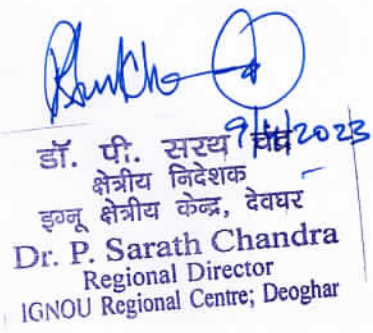 डॉ. पी. सरथ चंद्र
क्षेत्रीय निदेशक
इग्नू क्षेत्रीय केन्द्र, देवघर
Dr. P. Sarath Chandra
Regional Director
IGNOU Regional Centre; Deoghar